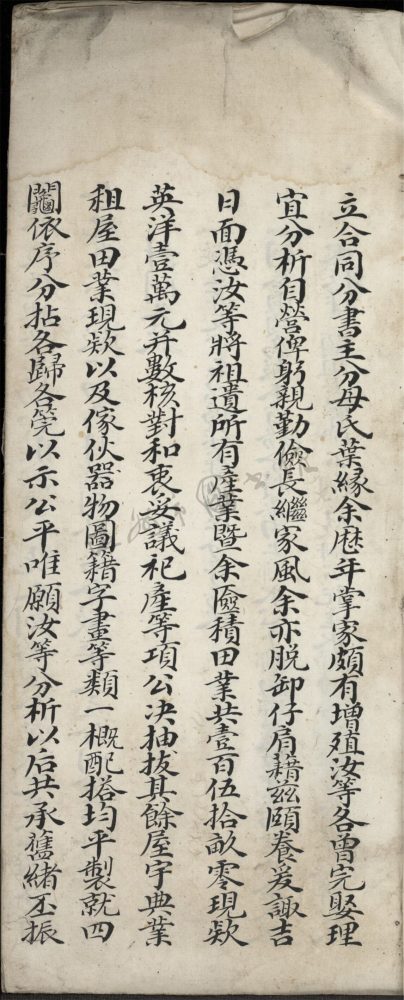 立合同分書主分母氏葉緣余歷年掌家頗有增殖汝等各曾完娶理
宜分析自營俾躬親勤儉長繼家風余亦脫卸仔肩藉茲頤養爰諏吉
日面憑汝等將祖遺所有產業暨余儉積田業共壹百伍拾畝零現欵
英洋壹萬元并數核對和衷妥議祀產等項公决抽拔其餘屋宇典業
租屋田業現欵以及傢伙器物圖籍字畫等類一概配搭均平製就四
鬮依序分拈各歸各筦以示公平唯願汝等分析以后共承舊緒丕振